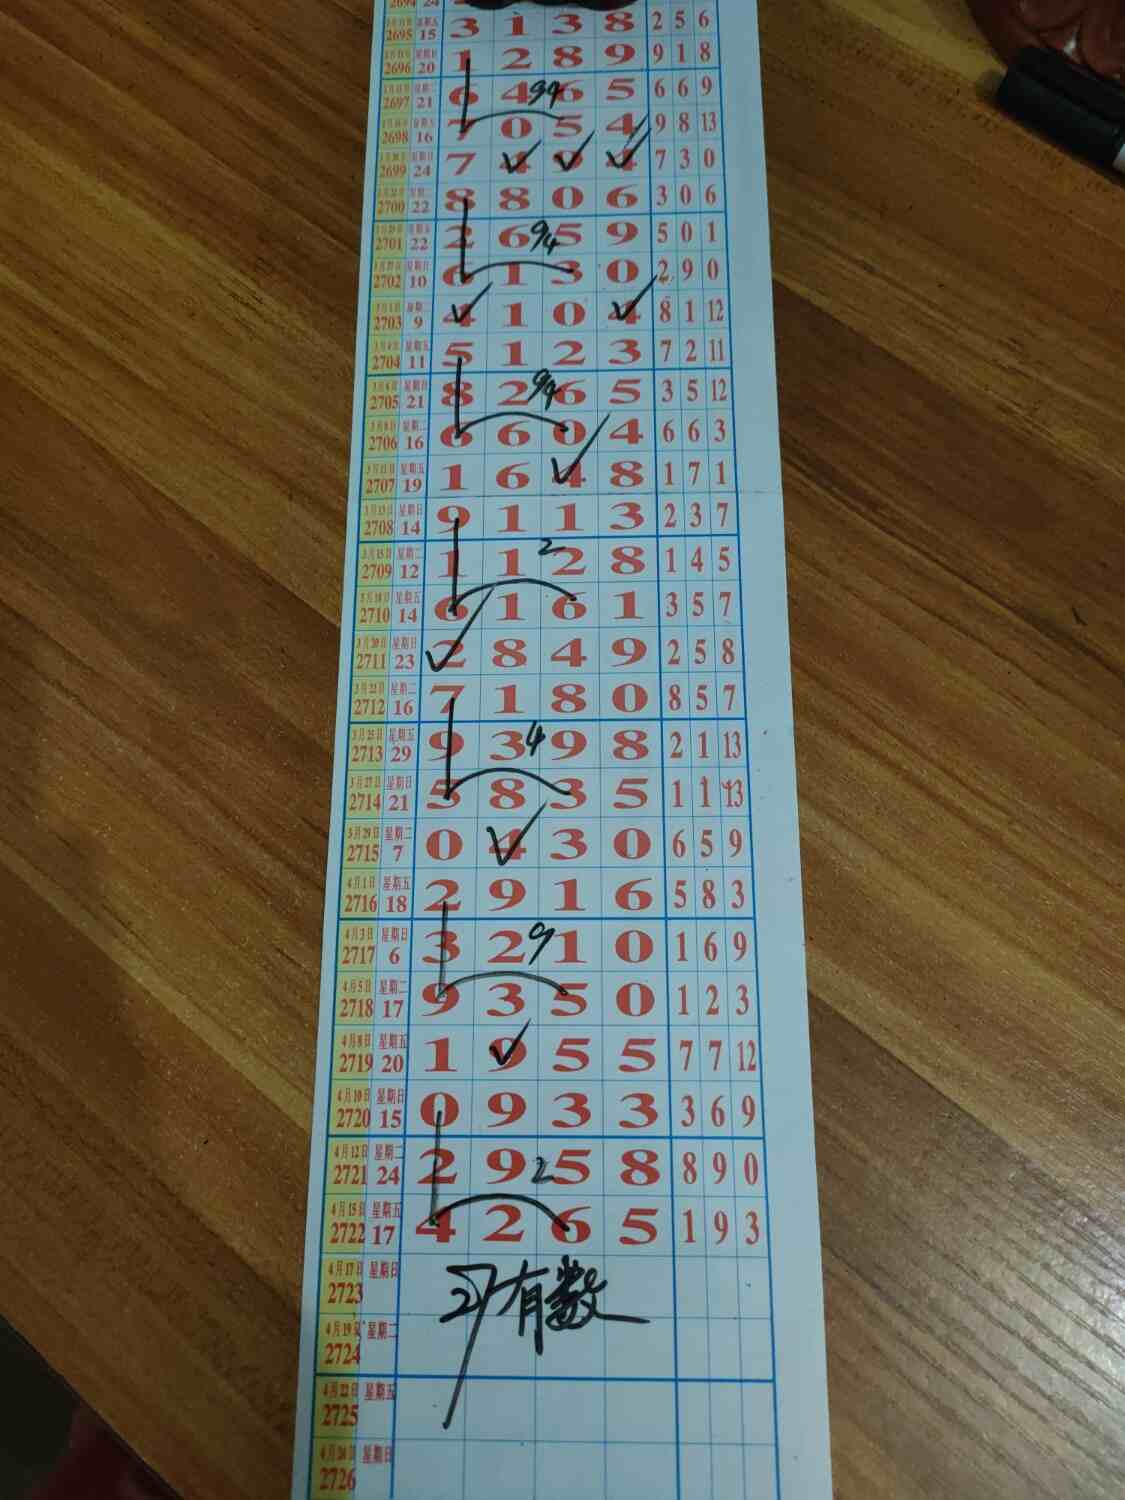 2694 24
2695 15 3 1 3 8 2 5 6
2696 20 1 2 8 9 9 1 8
2697 星期二 21 6 4 94 6 5 6 6 9
2698 16 7 0 5 4 9 8 13
2699 星期日 24 7 4 9 4 7 3 0
2700 22 8 8 0 6 3 0 6
2701 星期五 22 2 6 94 5 9 5 0 1
2702 星期日 10 6 1 3 0 2 9 0
3月1日 2703 星期二 9 4 1 0 4 8 1 12
3月4日 2704 星期五 11 5 1 2 3 7 2 11
3月6日 2705 星期日 21 8 2 94 6 5 3 5 12
3月8日 2706 星期二 16 6 6 0 4 6 6 3
3月11日 2707 星期五 19 1 6 4 8 1 7 1
3月13日 2708 星期日 14 9 1 1 3 2 3 7
3月15日 2709 星期二 12 1 1 2 2 8 1 4 5
3月18日 2710 星期五 14 6 1 6 1 3 5 7
3月20日 2711 星期日 23 2 8 4 9 2 5 8
3月22日 2712 星期二 16 7 1 8 0 8 5 7
3月25日 2713 星期五 29 9 3 4 9 8 2 1 13
3月27日 2714 星期日 21 5 8 3 5 1 1 13
3月29日 2715 星期二 7 0 4 3 0 6 5 9
4月1日 2716 星期五 18 2 9 1 6 5 8 3
4月3日 2717 星期日 6 3 2 9 1 0 1 6 9
4月5日 2718 星期二 17 9 3 5 0 1 2 3
4月8日 2719 星期五 20 1 9 5 5 7 7 12
4月10日 2720 星期日 15 0 9 3 3 3 6 9
4月12日 2721 星期二 24 2 9 2 5 8 8 9 0
4月15日 2722 星期五 17 4 2 6 5 1 9 3
4月17日 2723 星期日 27有数
4月19日 2724 星期二
4月22日 2725 星期五
4月24日 2726 星期日